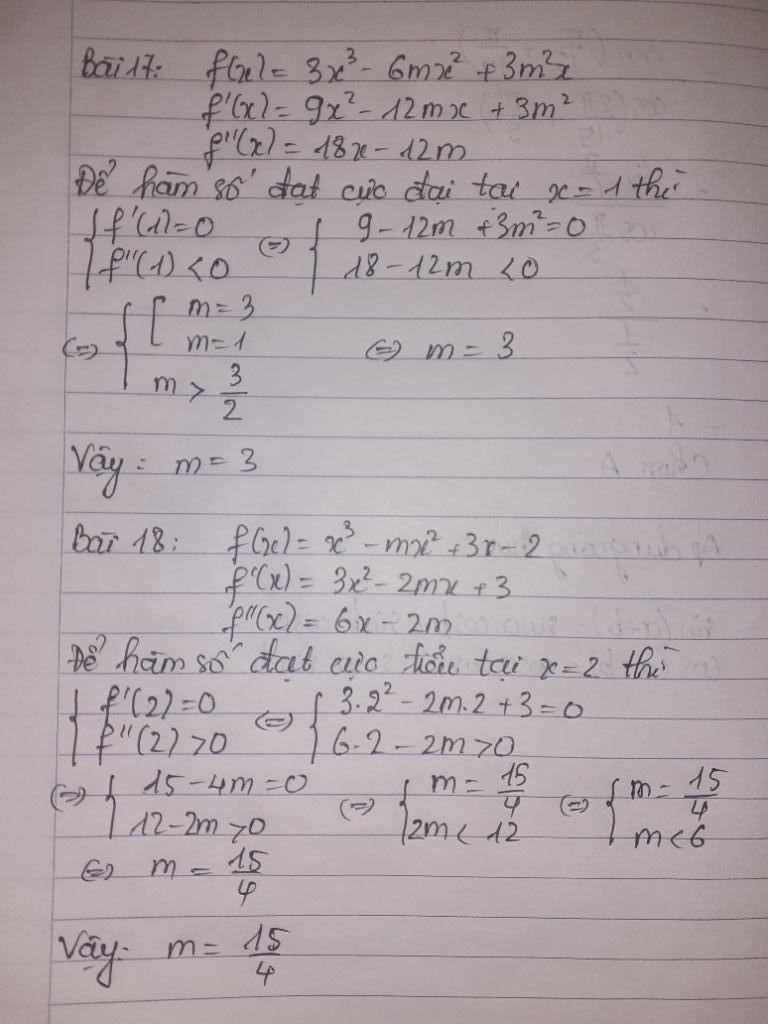 Bài 17: f(x) = 3x³ - 6mx² + 3m²x
f'(x) = 9x² - 12mx + 3m²
f''(x) = 18x - 12m
Để hàm số đạt cực đại tại x = 1 thì
{ f'(1) = 0 <=> { 9 - 12m + 3m² = 0
f''(1) < 0 18 - 12m < 0
<=> { [ m = 3
m = 1 <=> m = 3
m > 3/2
Vậy: m = 3
Bài 18: f(x) = x³ - mx² + 3x - 2
f'(x) = 3x² - 2mx + 3
f''(x) = 6x - 2m
Để hàm số đạt cực tiểu tại x = 2 thì
{ f'(2) = 0 <=> { 3.2² - 2m.2 + 3 = 0
f''(2) > 0 6.2 - 2m > 0
<=> { 15 - 4m = 0 <=> { m = 15/4 <=> { m = 15/4
12 - 2m > 0 2m < 12 m < 6
<=> m = 15/4
Vậy: m = 15/4